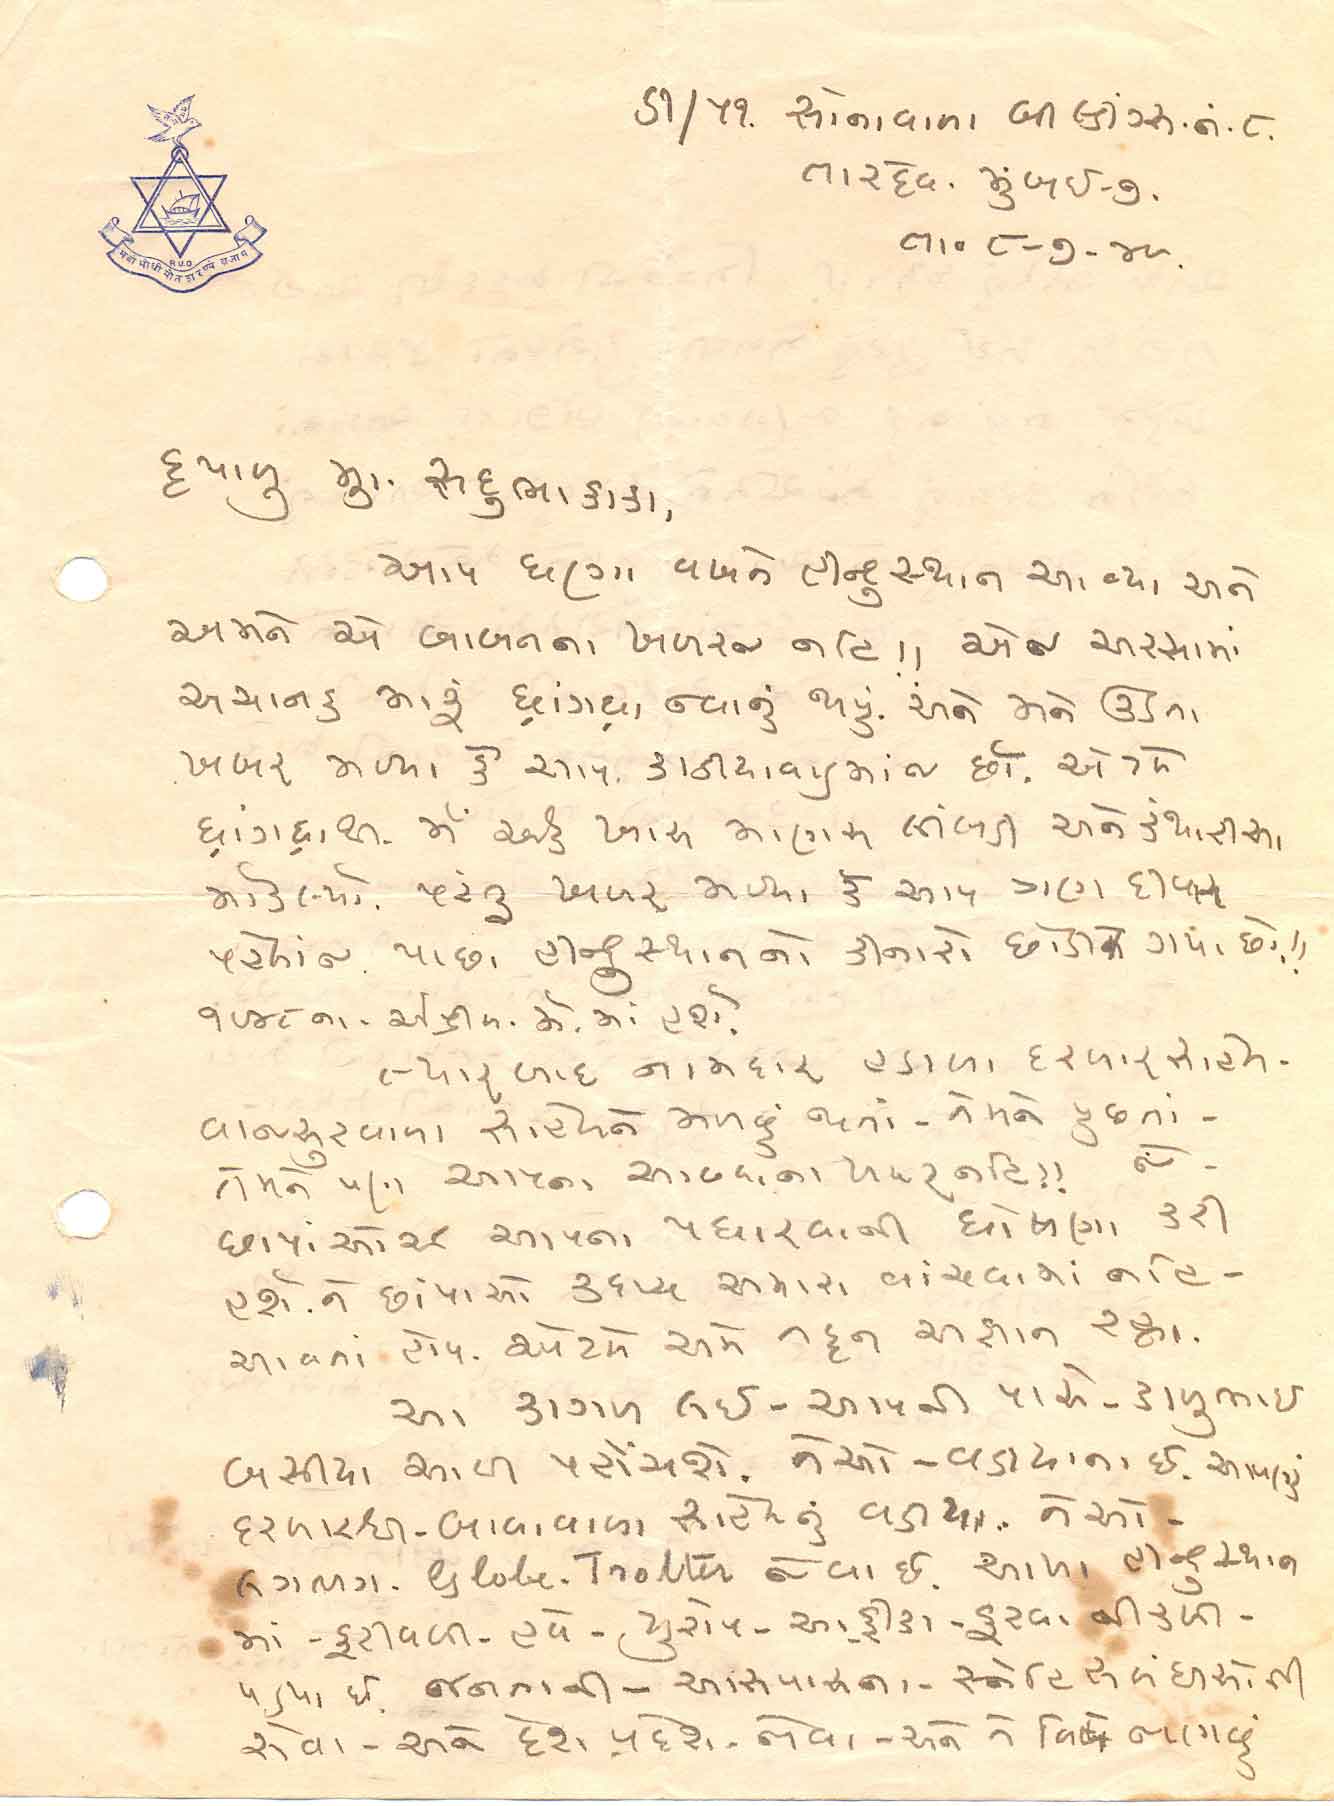 ડી/૫૧. સોનાવાળા બીલ્ડીંગ્સ. નં. ૮.
તારદેવ. મુંબઈ-૭.
તા૦ ૮-૭-૫૫.
P.V.O
કૃપાળુ મુ. સદુભાકાકા,
આપ ઘણા વખતે હીન્દુસ્થાન આવ્યા અને
અમને એ બાબતના ખબરજ નહિ!! એજ અરસામાં
અચાનક મારૂં ધ્રાંગધ્રા જવાનું થયું. અને મને ઉડતા
ખબર મળ્યા કે આપ. કાઠીયાવાડમાંજ છો. એટલે
ધ્રાંગધ્રાથી. મેં એક ખાસ માણસ લીંબડી અને કંથારીયા
મોકલ્યો. પરંતુ ખબર મળ્યા કે આપ ત્રણ દીવસ
પહેલાંજ પાછા હીન્દુસ્થાનનો કીનારો છોડીને ગયા છો!!
૧૯૫૮ના. એપ્રીલ. મે. માં હશે.
ત્યારબાદ નામદાર હડાળા દરબારસાહેબ-
વાજસુરવાળા સાહેબને મળવું થતાં - તેમને પુછતાં -
તેમને પણ આપના આવવાના ખબર નહિ!! જે -
છાપાંઓએ આપના પધારવાની ઘોષણા કરી
હશે. તે છાંપાઓ કદાચ અમારા વાંચવામાં નહિ -
આવતાં હોય. એટલે અમે તદ્દન અજ્ઞાન રહ્યા.
આ કાગળ લઈ - આપની પાસે - કાળુભાઈ
બસીયા આવી પહોંચશે. તેઓ - વડીયાના છે. આપણું
દરબારશ્રી - બાવાવાળા સાહેબનું વડીયા. તેઓ -
લગભગ. Globe. Trotter જેવા છે. આખા હીન્દુસ્થાન
માં - ફરીવળી - હવે - યુરોપ - આફ્રીકા - ફરવા નીકળી -
પડ્યા છે. જનતાની - આસપાસના - સ્નેહિ સંબંધીઓની
સેવા - અને દેશ પ્રદેશ. જોવા - અને તે વિષે જાણવું